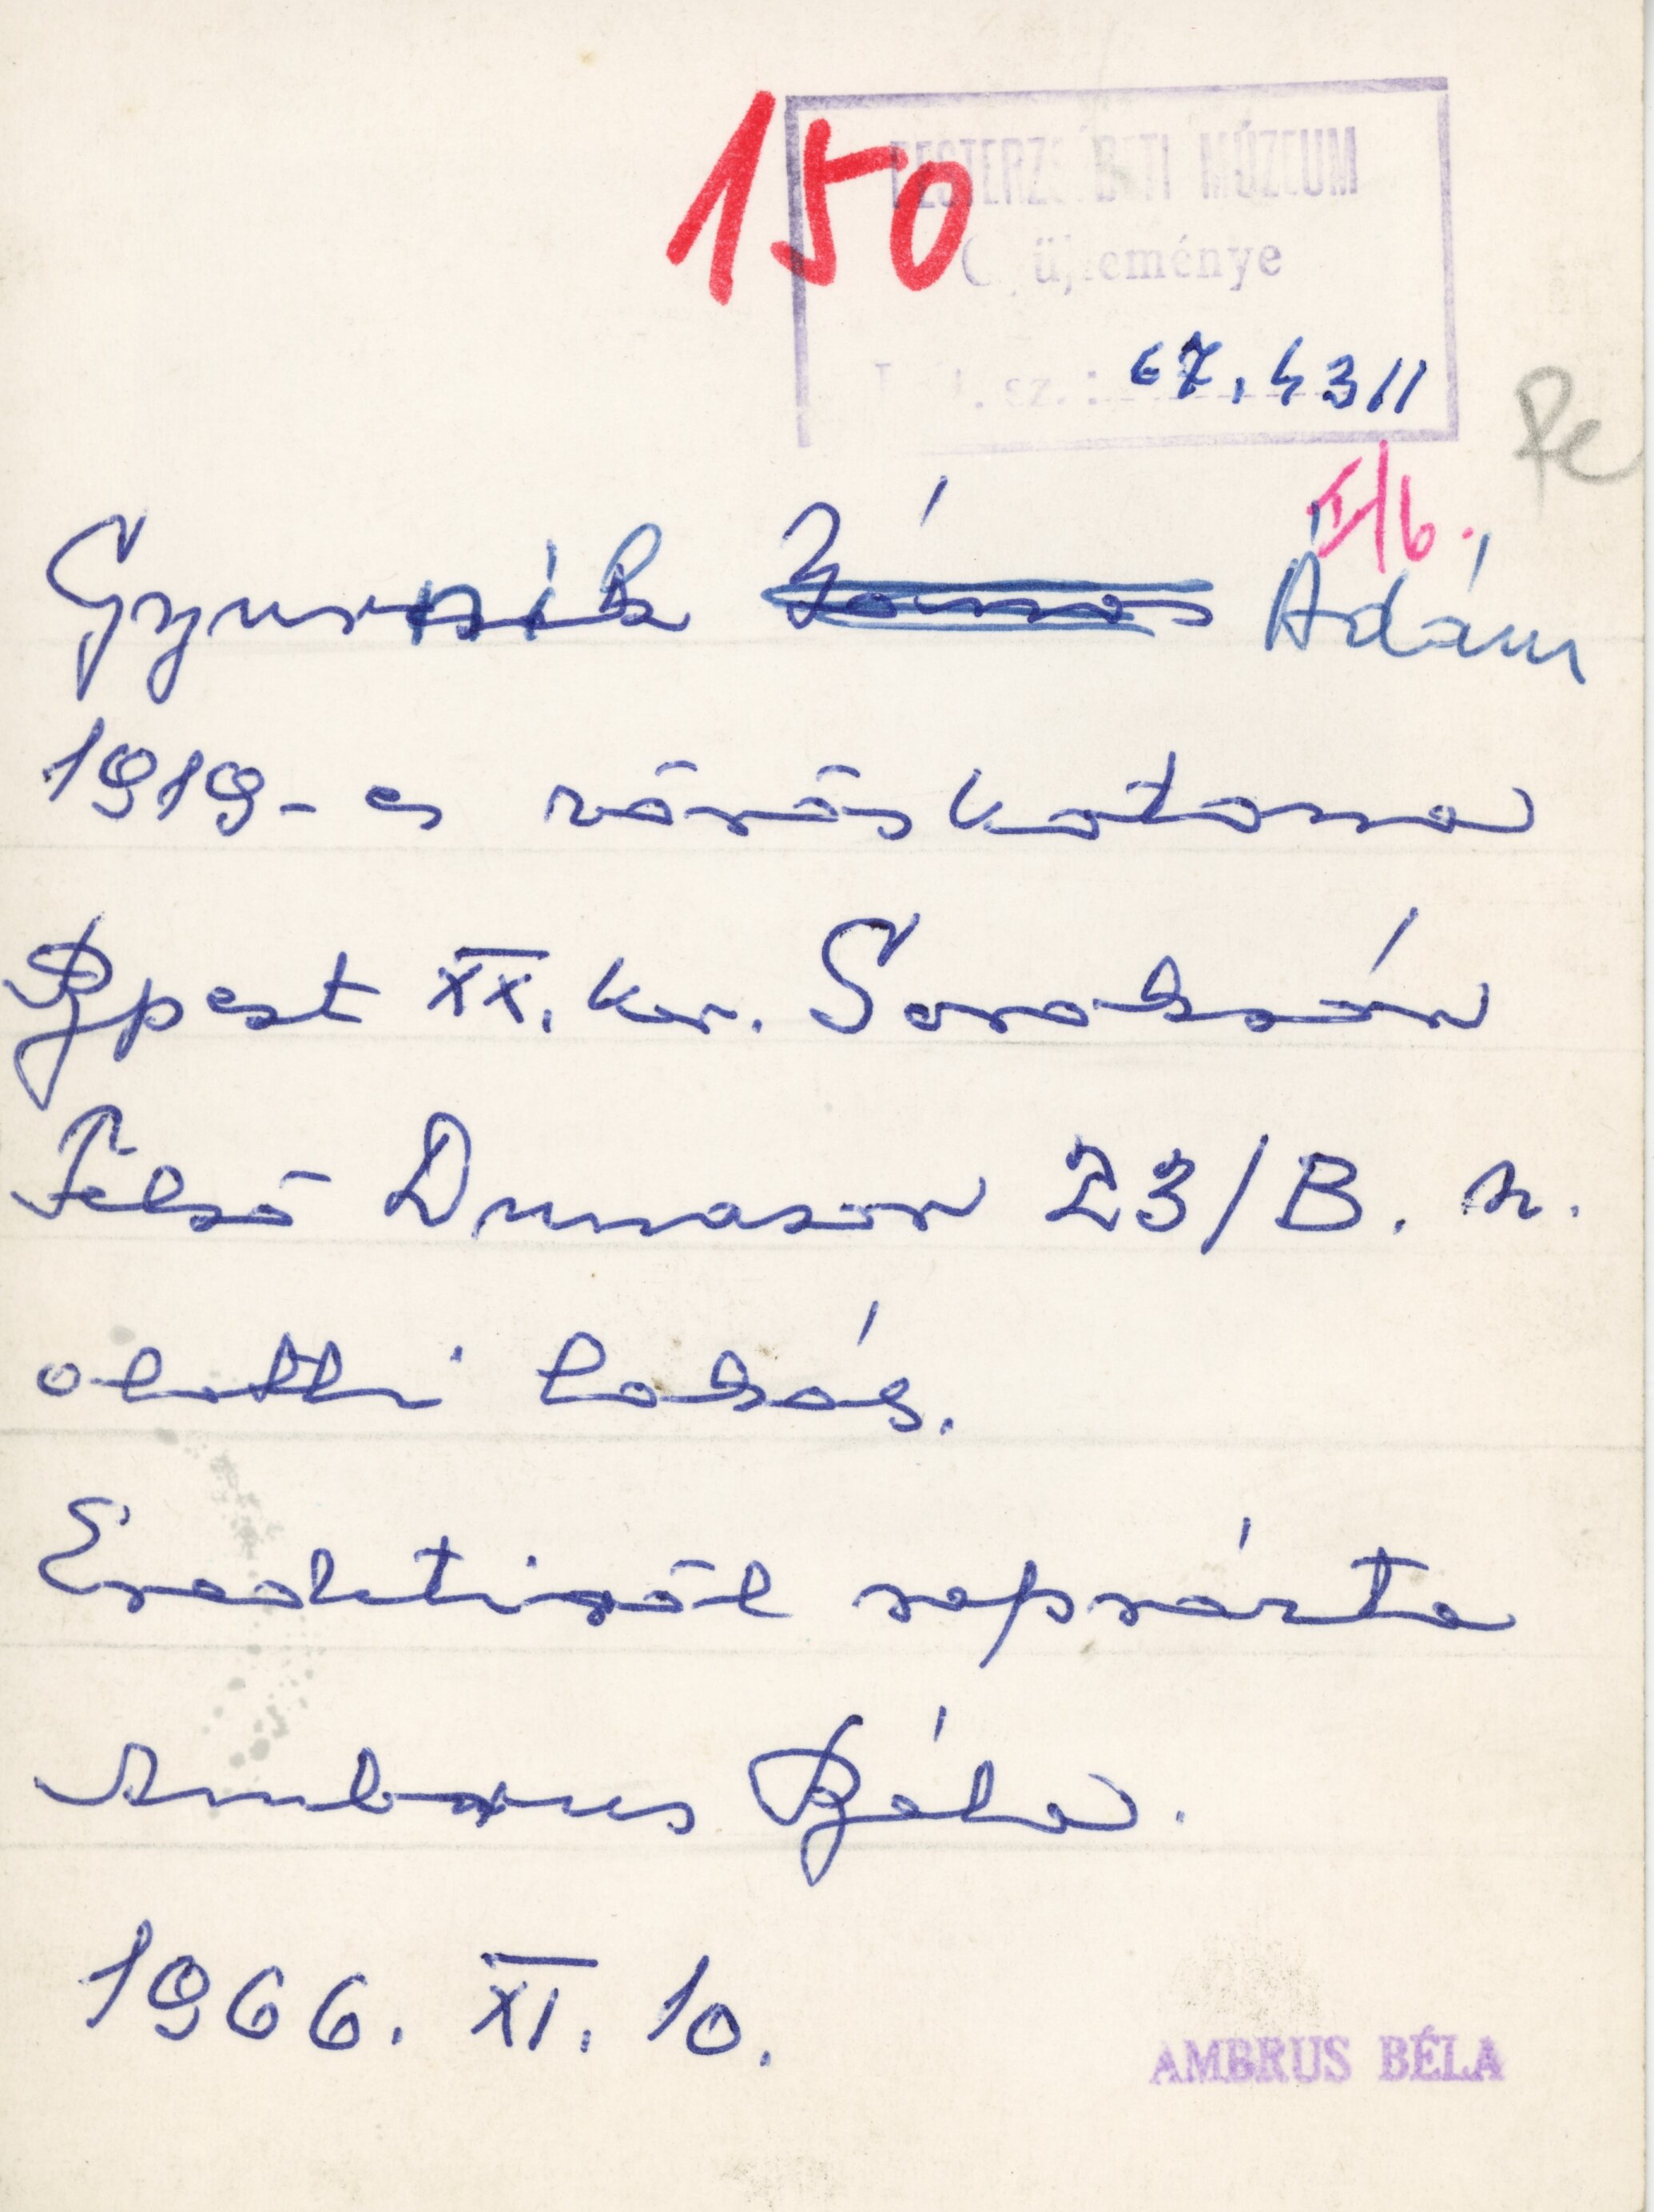 150
PESTERZSÉBETI MÚZEUM
Gyűjteménye
67.4311
I/6.
Gyurcsik János Ádám
1919-es vöröskatona
Bpest XX. ker. Soroksár
Felső Dunasor 23/B. sz.
alatti lakás.
Eredetiről reprózta
Ambrus Béla.
1966. XI. 10.
AMBRUS BÉLA